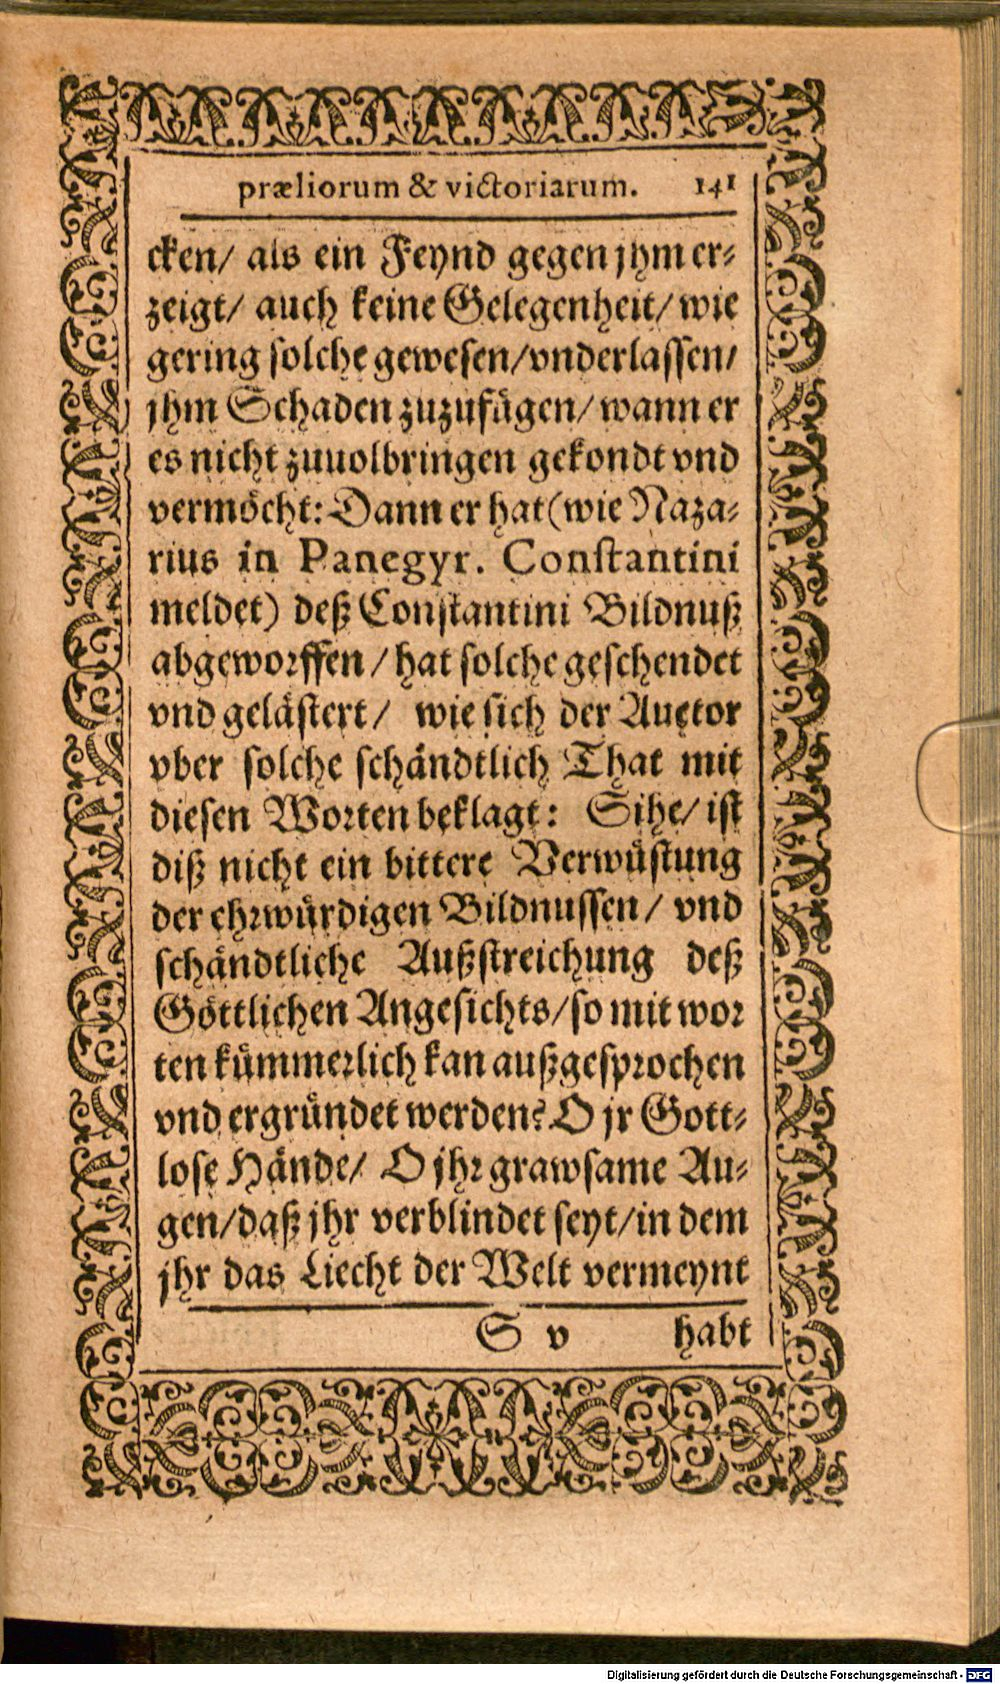 præliorum & victoriarum. 141
cken/ als ein Feynd gegen jhm er⸗
zeigt/ auch keine Gelegenheit/ wie
gering solche gewesen/vnderlassen/
jhm Schaden zuzufügen/ wann er
es nicht zuuolbringen gekondt vnd
vermöcht: Dann er hat (wie Naza⸗
rius in Panegyr. Constantini
meldet) deß Constantini Bildnuß
abgeworffen / hat solche geschendet
vnd gelästert/ wie sich der Auctor
vber solche schändtlich That mit
diesen Worten beklagt: Sihe/ ist
diß nicht ein bittere Verwüstung
der ehrwürdigen Bildnussen/ vnd
schändtliche Außstreichung deß
Göttlichen Angesichts/so mit wor
ten kümmerlich kan außgesprochen
vnd ergründet werden? O jr Gott⸗
lose Hände/ O jhr grawsame Au⸗
gen/daß jhr verblindet seyt/in dem
jhr das Liecht der Welt vermeynt
S v habt
Digitalisierung gefördert durch die Deutsche Forschungsgemeinschaft - DFG